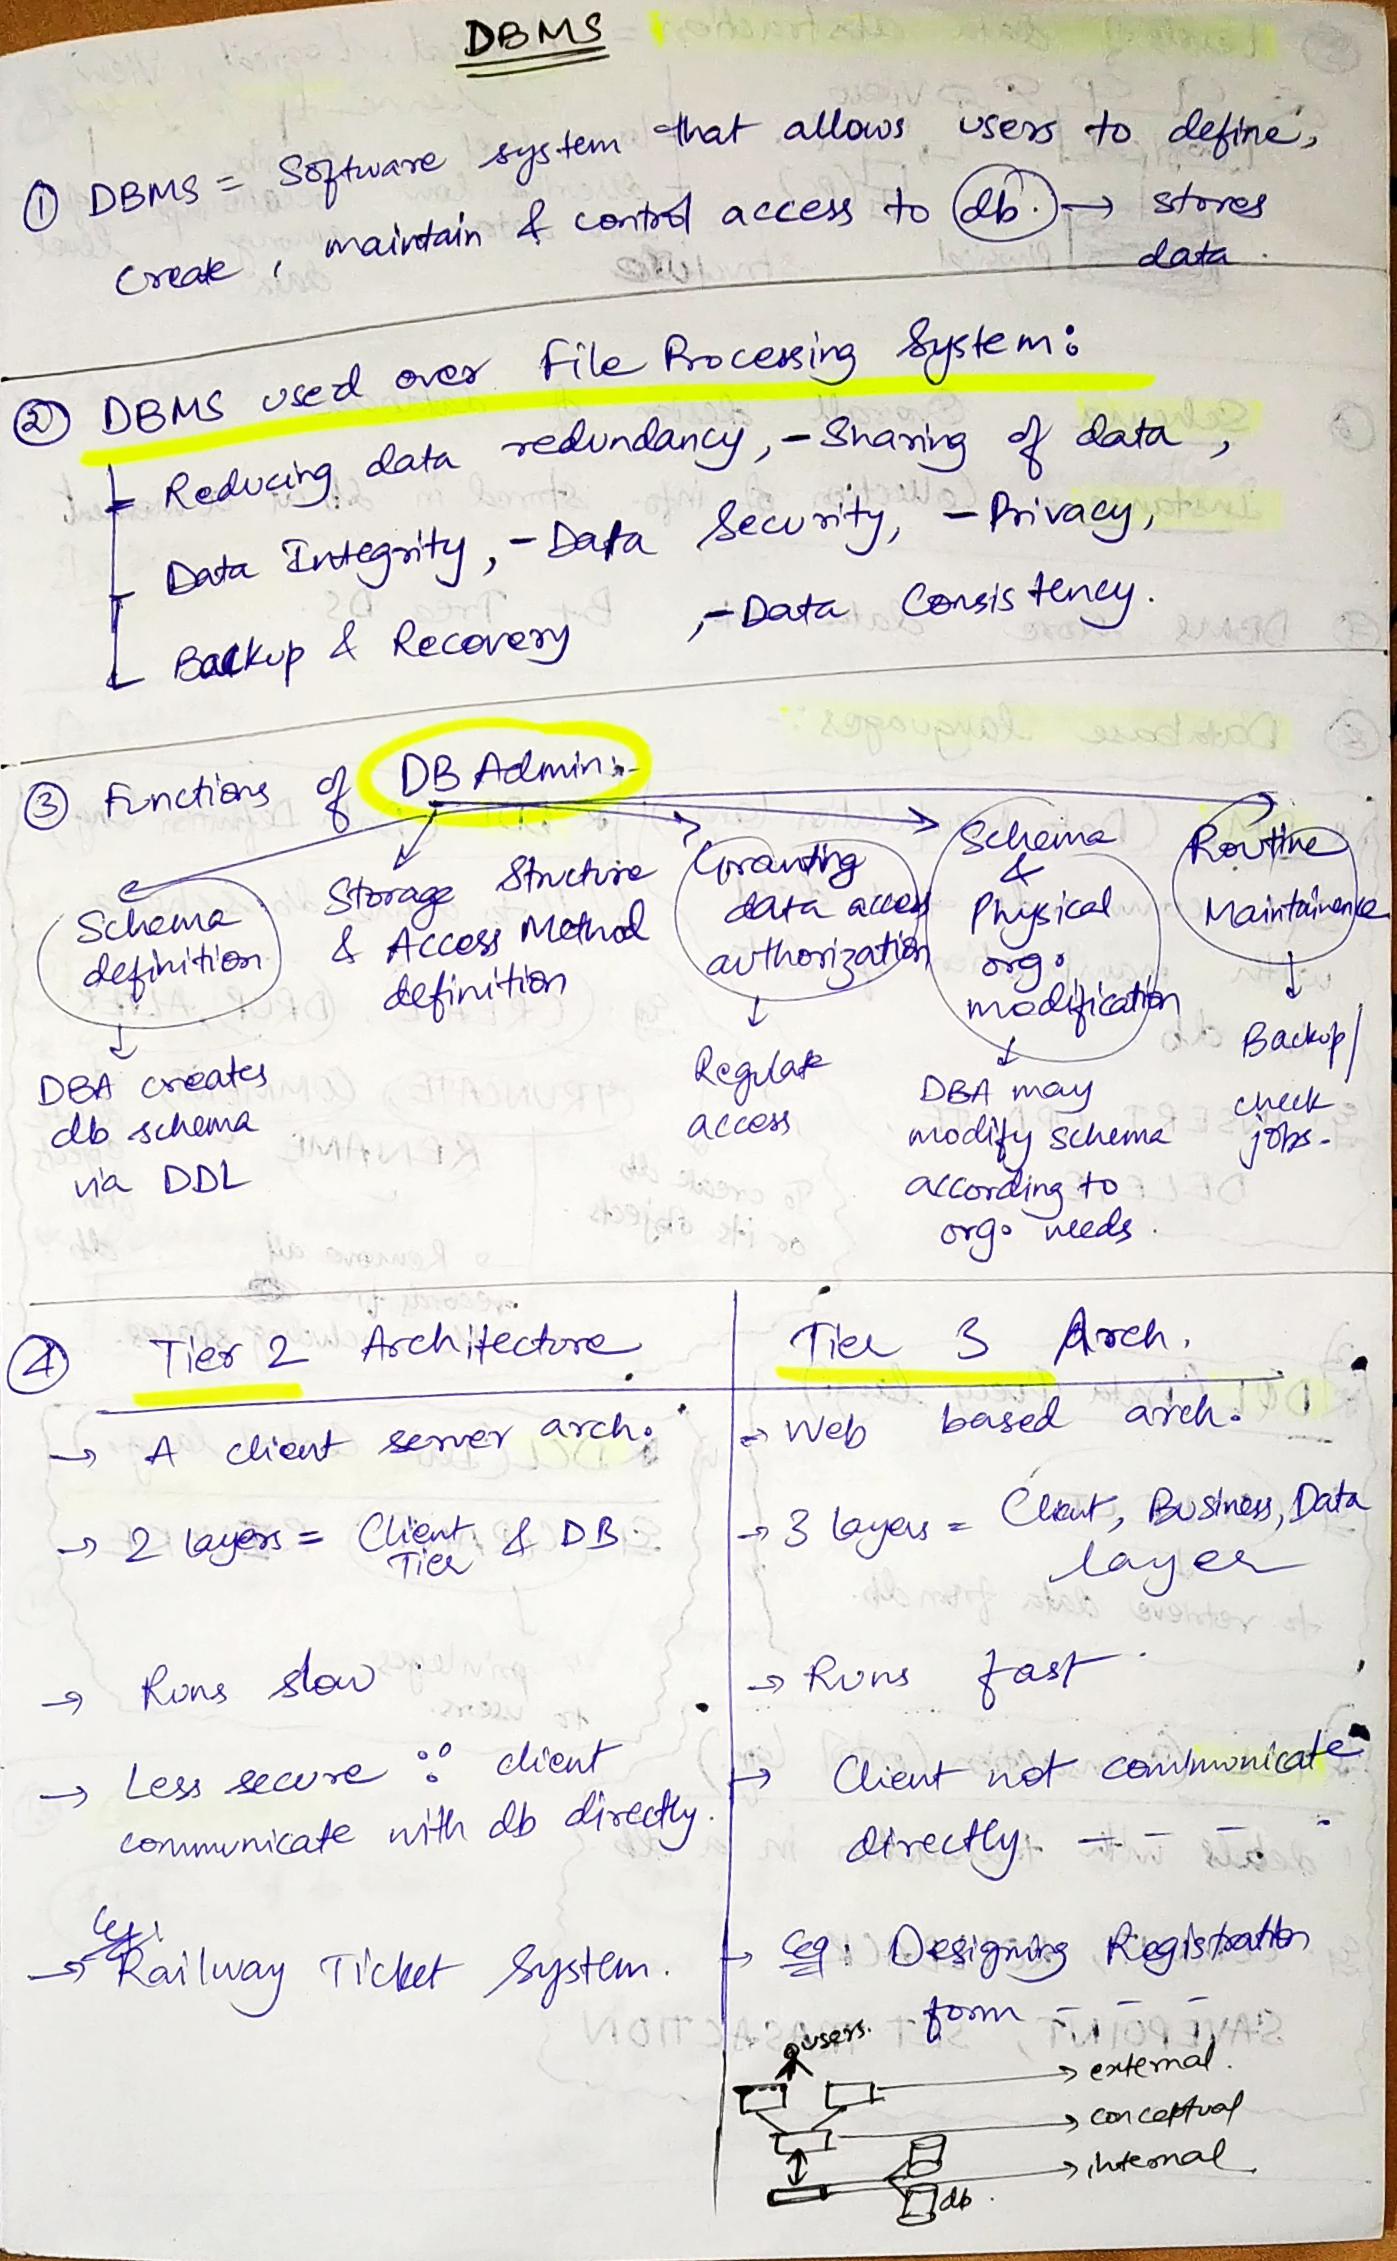 DBMS
① DBMS = Software system that allows users to define,
create, maintain & control access to db. → stores
data.
② DBMS used over File Processing System:
- Reducing data redundancy, - Sharing of data,
- Data Integrity, - Data Security, - Privacy,
- Backup & Recovery, - Data Consistency.
③ Functions of DB Admin:-
Schema
definition
↓
DBA creates
db schema
via DDL
Storage Structure
& Access Method
definition
Granting
data access
authorization
↓
Regulate
access
Schema
&
Physical
org.
modification
↓
DBA may
modify schema
according to
org. needs.
Routine
Maintainence
↓
Backup/
check
jobs.
④ Tier 2 Architecture
→ A client server arch.
→ 2 layers = Client & DB.
Tier
→ Runs slow.
→ Less secure ∵ client
communicate with db directly.
eg:
→ Railway Ticket System.
Tier 3 Arch.
→ Web based arch.
→ 3 layers = Client, Business, Data
layer
→ Runs fast.
→ Client not communicate
directly - - - -
→ eg: Designing Registration
form - - -
users.
→ external.
→ conceptual
→ internal
db.